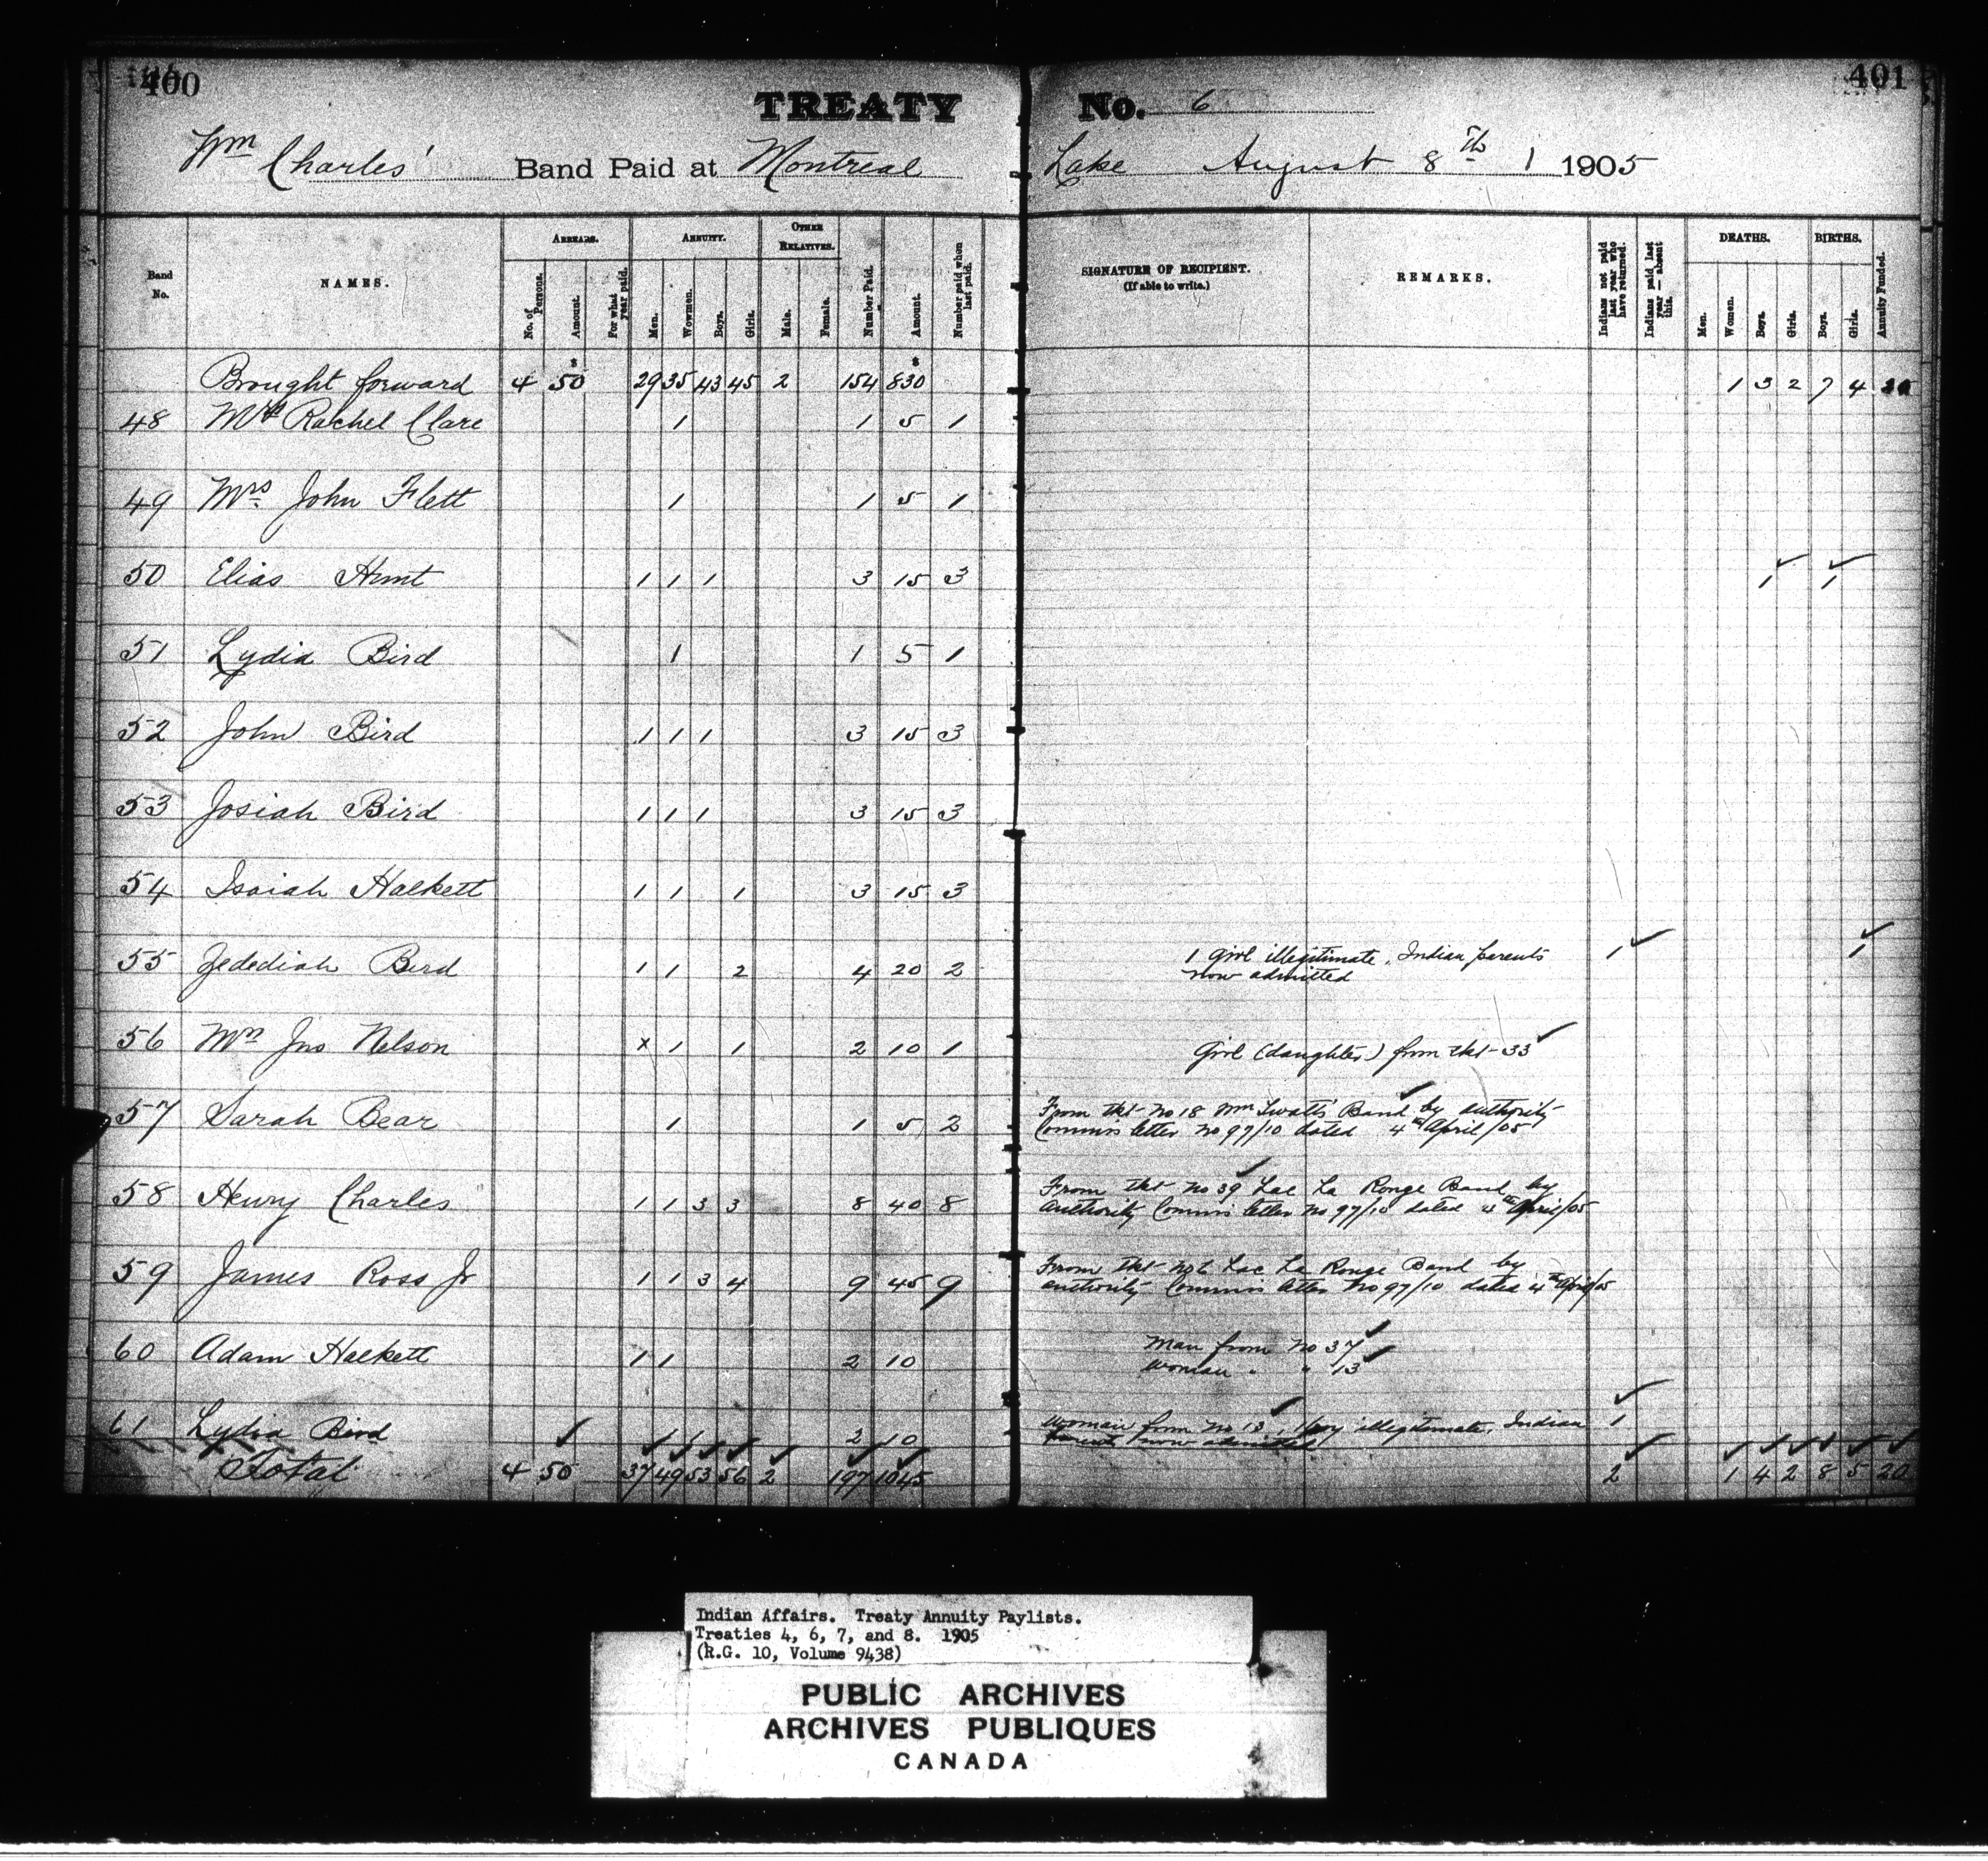 400
401
TREATY No. 6
Wm Charles' Band Paid at Montreal Lake August 8th 1 1905
Band No. NAMES. ARREARS. ANNUITY. OTHER RELATIVES. Number Paid. Amount. Number paid when last paid. SIGNATURE OF RECIPIENT. (If able to write.) REMARKS. Indians not paid last year who have returned. Indians paid last year — absent this. DEATHS. BIRTHS. Annuity Funded.
No. of Persons. Amount. For what year paid. Men. Wowmen. Boys. Girls. Male. Female. Men. Women. Boys. Girls. Boys. Girls.
$ $
Brought forward 4 50 29 35 43 45 2 154 830 1 3 2 7 4
48 Mrs Rachel Clare 1 1 5 1
49 Mrs. John Flett 1 1 5 1
50 Elias Hunt 1 1 1 3 15 3 1 1
51 Lydia Bird 1 1 5 1
52 John Bird 1 1 1 3 15 3
53 Josiah Bird 1 1 1 3 15 3
54 Isaiah Halkett 1 1 1 3 15 3
55 Jedediah Bird 1 1 2 4 20 2 1 girl illegitimate, Indian parents 1 1
now admitted
56 Mrs Jno Nelson x 1 1 2 10 1 Girl (daughter) from tkt 33
57 Sarah Bear 1 1 5 2 From tkt No 18 Wm Twatts Band by authority
Commrs letter No 97/10 dated 4th April/05
58 Henry Charles 1 1 3 3 8 40 8 From tkt No 39 Lac La Ronge Band by
authority Commrs letter No 97/10 dated 4th April/05
59 James Ross Jr 1 1 3 4 9 45 9 From tkt Lac La Ronge Band by
authority Commrs letter No 97/10 dated 4th April/05
60 Adam Halkett 1 1 2 10 Man from No 37
Woman " " 13
61 Lydia Bird 1 1 2 10 Woman from No 13, 1 boy illegitimate, Indian 1
parents now admitted
Total 4 50 37 49 53 56 2 197 1045 2 1 4 2 8 5 20
Indian Affairs. Treaty Annuity Paylists.
Treaties 4, 6, 7, and 8. 1905
(R.G. 10, Volume 9438)
PUBLIC ARCHIVES
ARCHIVES PUBLIQUES
CANADA